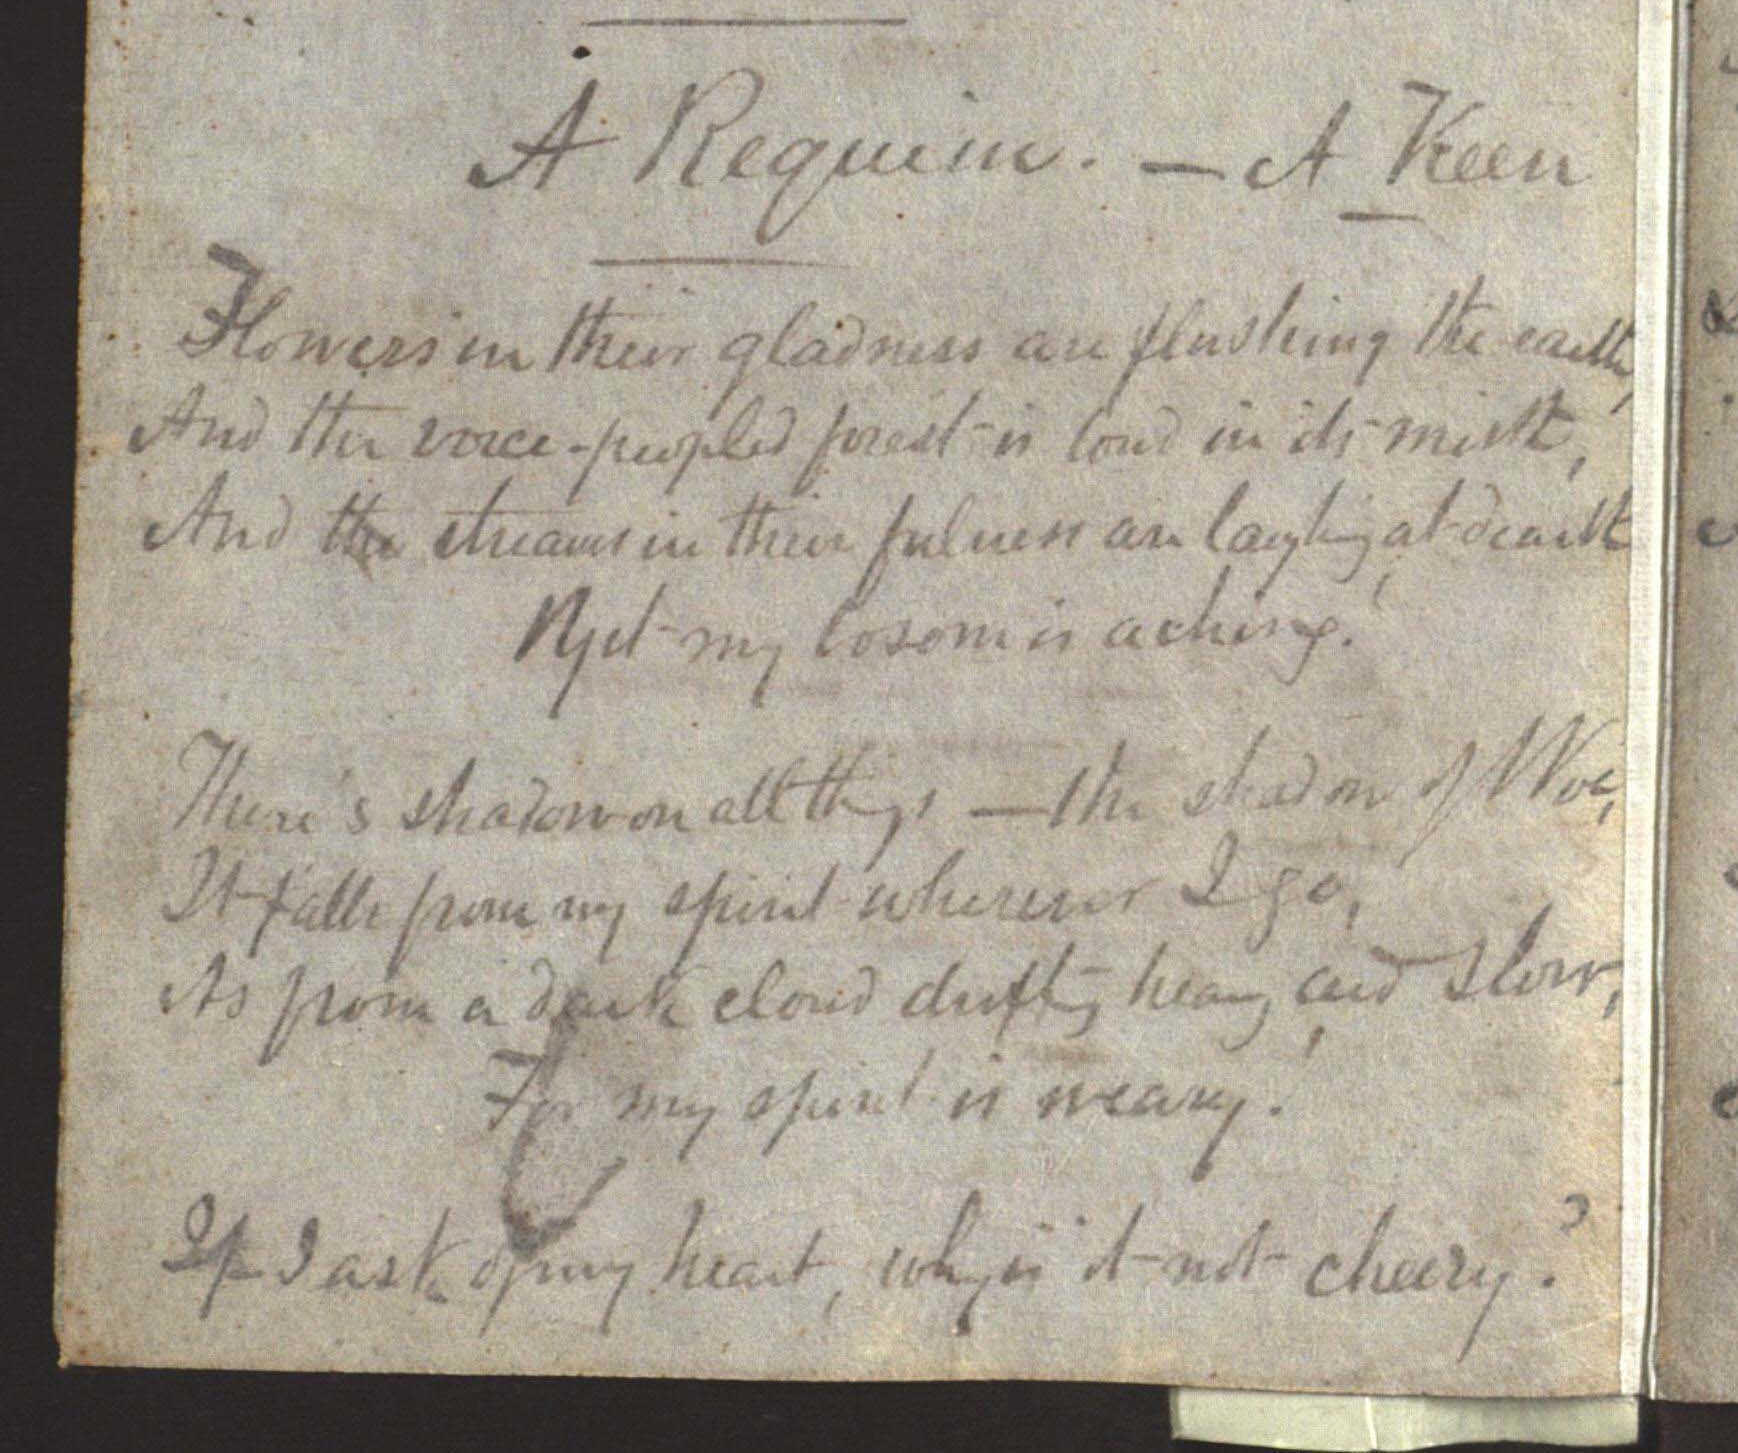 A Requiem. — A Keen
Flowers in their gladness are flushing the earth,
And the voice-peopled forest is loud in its mirth,
And the streams in their fulness are laughing at dearth
Yet my bosom is aching!
There's shadow on all things — the shadow of Woe,
It falls from my spirit wherever I go,
As from a dark cloud drifting heavy and slow,
For my spirit is weary!
If I ask of my heart, why is it not cheery?